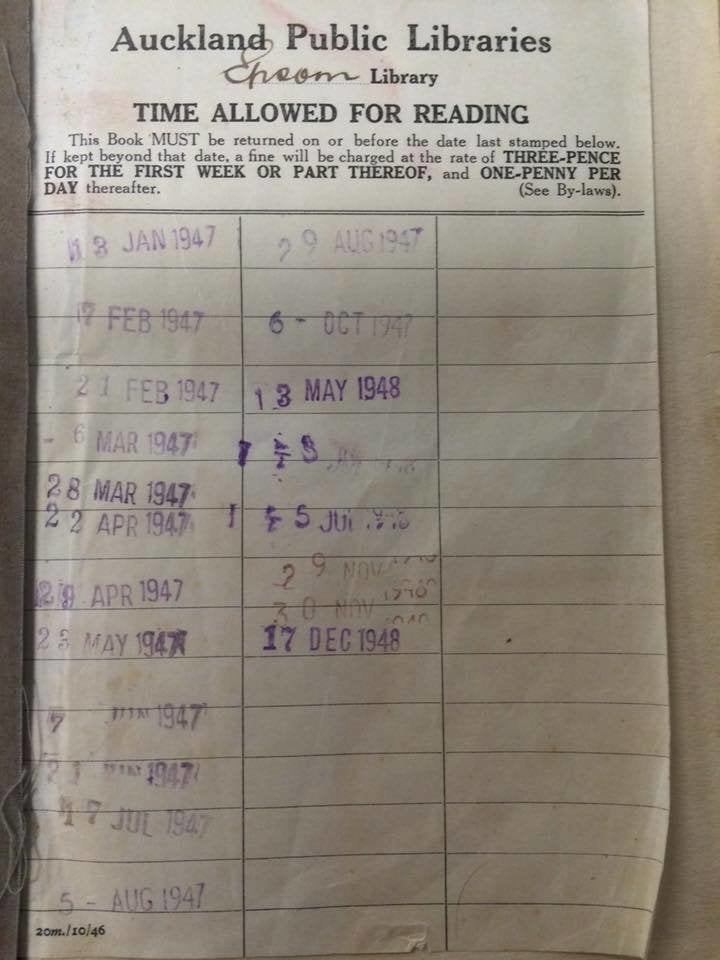 Auckland Public Libraries
Epsom Library
TIME ALLOWED FOR READING
This Book MUST be returned on or before the date last stamped below.
If kept beyond that date, a fine will be charged at the rate of THREE-PENCE
FOR THE FIRST WEEK OR PART THEREOF, and ONE-PENNY PER
DAY thereafter. (See By-laws).
13 JAN 1947
17 FEB 1947
21 FEB 1947
- 6 MAR 1947
28 MAR 1947
22 APR 1947
29 APR 1947
23 MAY 1947
7 JUN 1947
21 1947
17 JUL 1947
5 - AUG 1947
29 AUG 1947
6 - OCT 1947
13 MAY 1948
5 JUL
29 NOV 1948
30 NOV
17 DEC 1948
20m./10/46